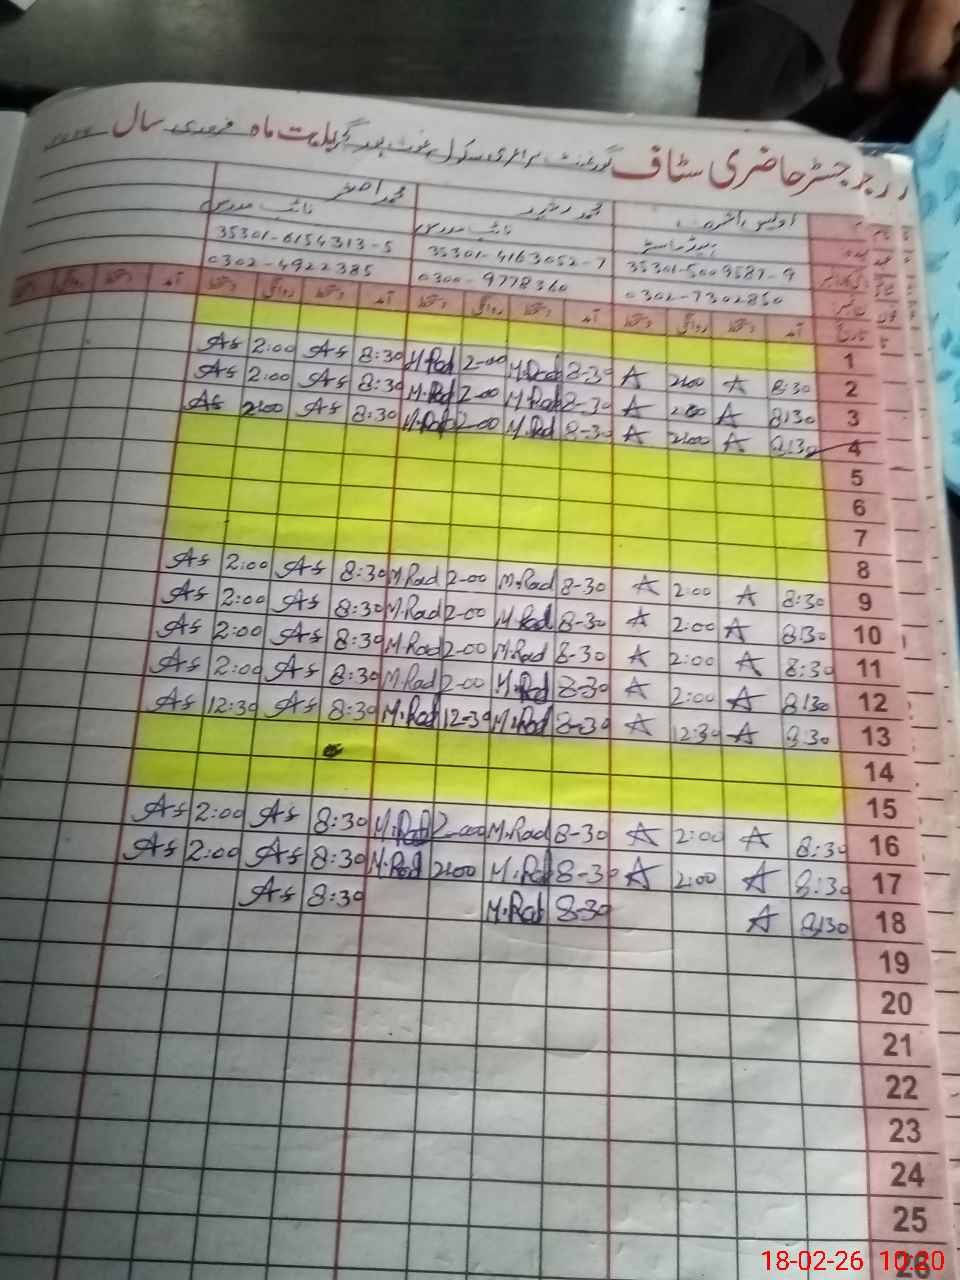 رجسٹر حاضری سٹاف گورنمنٹ پرائمری سکول بابت ماہ فروری سال
اویس اشرف محمد رشید محمد اصغر
ہیڈ ماسٹر نائب مدرس نائب مدرس
35301-5009587-9 35301-4163052-7 35301-6154313-5
0302-7302860 0300-9778360 0302-4922385
تاریخ آمد دستخط روانگی دستخط آمد دستخط روانگی دستخط آمد دستخط روانگی دستخط آمد دستخط روانگی دستخط
1
2 8:30 A 2:00 A 8-30 M.Rad 2-00 M.Rad 8:30 As 2:00 As
3 8:30 A 2:00 A 8-30 M.Rad 2-00 M.Rad 8:30 As 2:00 As
4 8:30 A 2:00 A 8-30 M.Rad 2-00 M.Rad 8:30 As 2:00 As
5
6
7
8
9 8:30 A 2:00 A 8-30 M.Rad 2-00 M.Rad 8:30 As 2:00 As
10 8:30 A 2:00 A 8-30 M.Rad 2-00 M.Rad 8:30 As 2:00 As
11 8:30 A 2:00 A 8-30 M.Rad 2-00 M.Rad 8:30 As 2:00 As
12 8:30 A 2:00 A 8-30 M.Rad 2-00 M.Rad 8:30 As 2:00 As
13 8:30 A 12:30 A 8-30 M.Rad 12-30 M.Rad 8:30 As 12:30 As
14
15
16 8:30 A 2:00 A 8-30 M.Rad 2-00 M.Rad 8:30 As 2:00 As
17 8:30 A 2:00 A 8-30 M.Rad 2:00 M.Rad 8:30 As 2:00 As
18 8:30 A 8-30 M.Rad 8:30 As
19
20
21
22
23
24
25
26
18-02-26 10:20